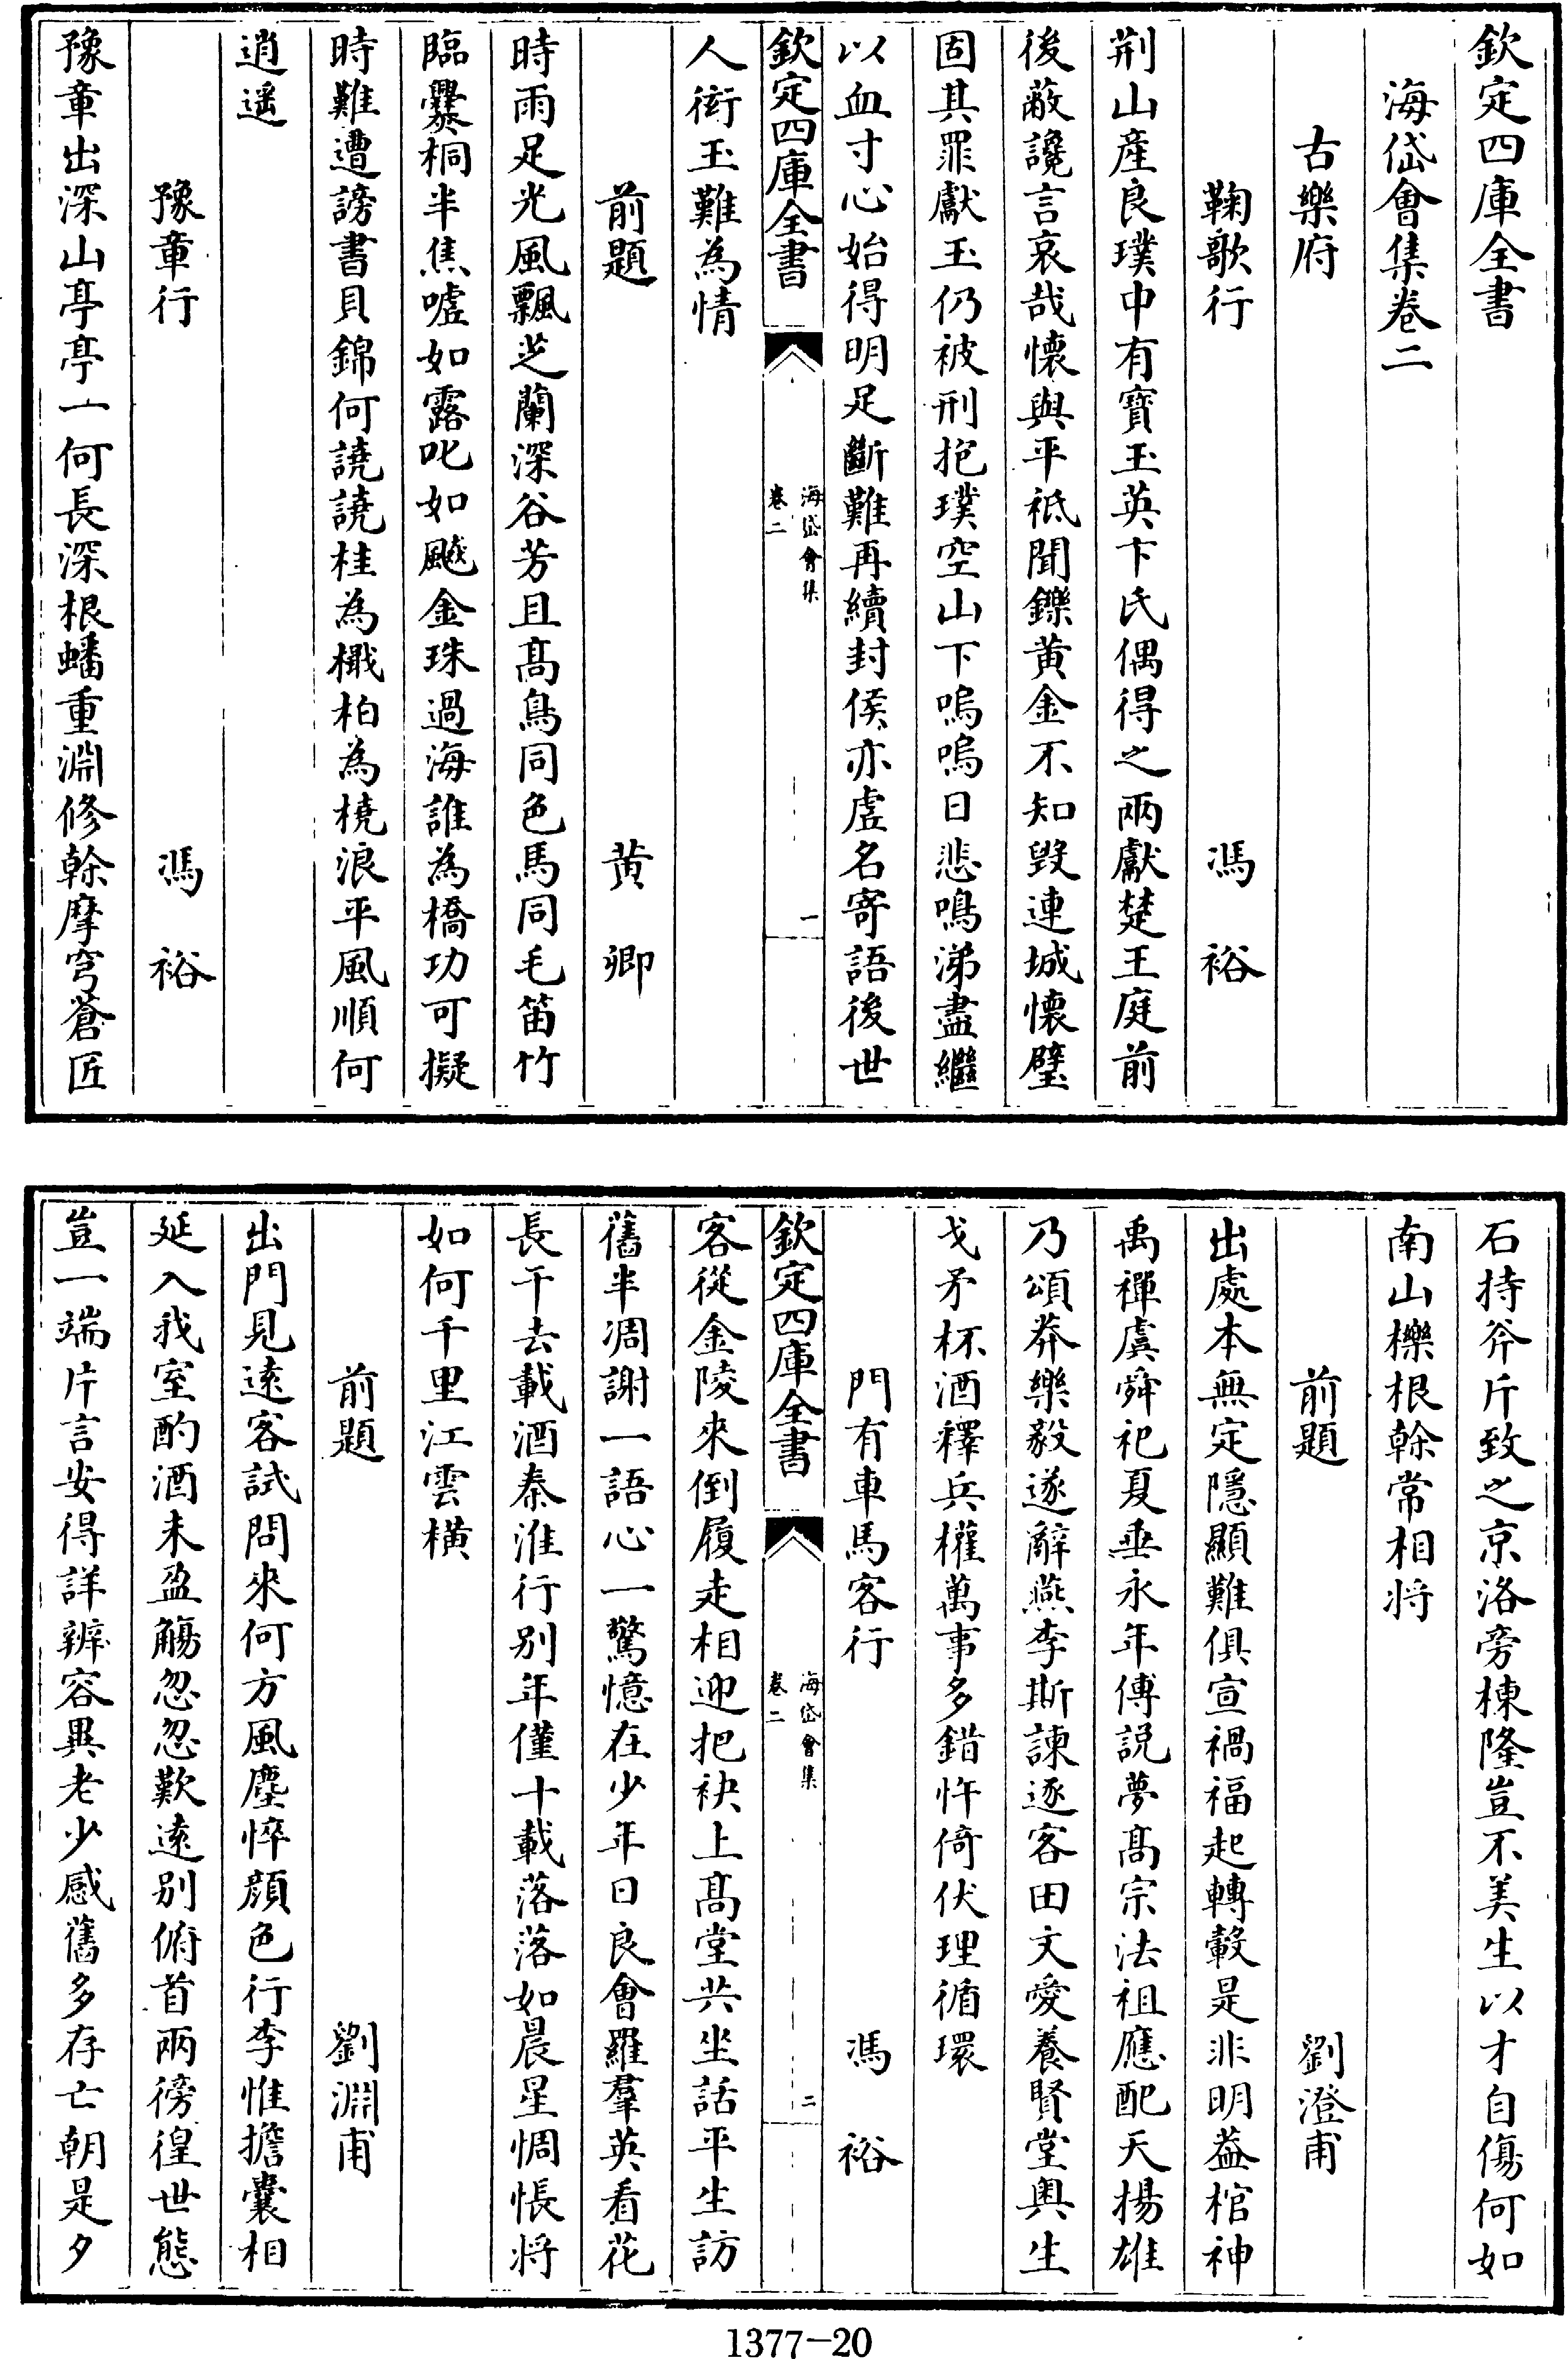 欽定四庫全書
海岱會集卷二
古樂府
鞠歌行　馮裕
荆山產良璞中有寶玉英卞氏偶得之兩獻楚王庭前
後蔽讒言哀哉懷與平祗聞鑠黄金不知毀連城懷璧
固其罪獻玉仍被刑抱璞空山下嗚嗚日悲鳴涕盡繼
以血寸心始得明足斷難再續封侯亦虛名寄語後世
欽定四庫全書　海岱會集卷二　一
人衒玉難為情
前題　黄卿
時雨足光風飄芝蘭深谷芳且髙鳥同色馬同毛笛竹
臨爨桐半焦噓如露叱如飇金珠過海誰為橋功可擬
時難遭謗書貝錦何譊譊桂為檝柏為橈浪平風順何
逍遥
豫章行　馮裕
豫章出深山亭亭一何長深根蟠重淵修榦摩穹蒼匠
石持斧斤致之京洛旁棟隆豈不美生以才自傷何如
南山櫟根榦常相将
前題　劉澄甫
出處本無定隱顯難俱宣禍福起轉轂是非明葢棺神
禹禪虞舜祀夏垂永年傅説夢髙宗法祖應配天揚雄
乃頌莽樂毅遂辭燕李斯諫逐客田文愛養賢堂輿生
戈矛杯酒釋兵權萬事多錯忤倚伏理循環
門有車馬客行　馮裕
欽定四庫全書　海岱會集卷二　二
客從金陵來倒履走相迎把袂上髙堂共坐話平生訪
舊半凋謝一語心一驚憶在少年日良會羅羣英看花
長干去載酒秦淮行别年僅十載落落如晨星惆悵将
如何千里江雲横
前題　劉淵甫
出門見逺客試問來何方風塵悴顔色行李惟擔囊相
延入我室酌酒未盈觴忽忽歎逺别俯首兩徬徨世態
豈一端片言安得詳辨容異老少感舊多存亡朝是夕
1377-20